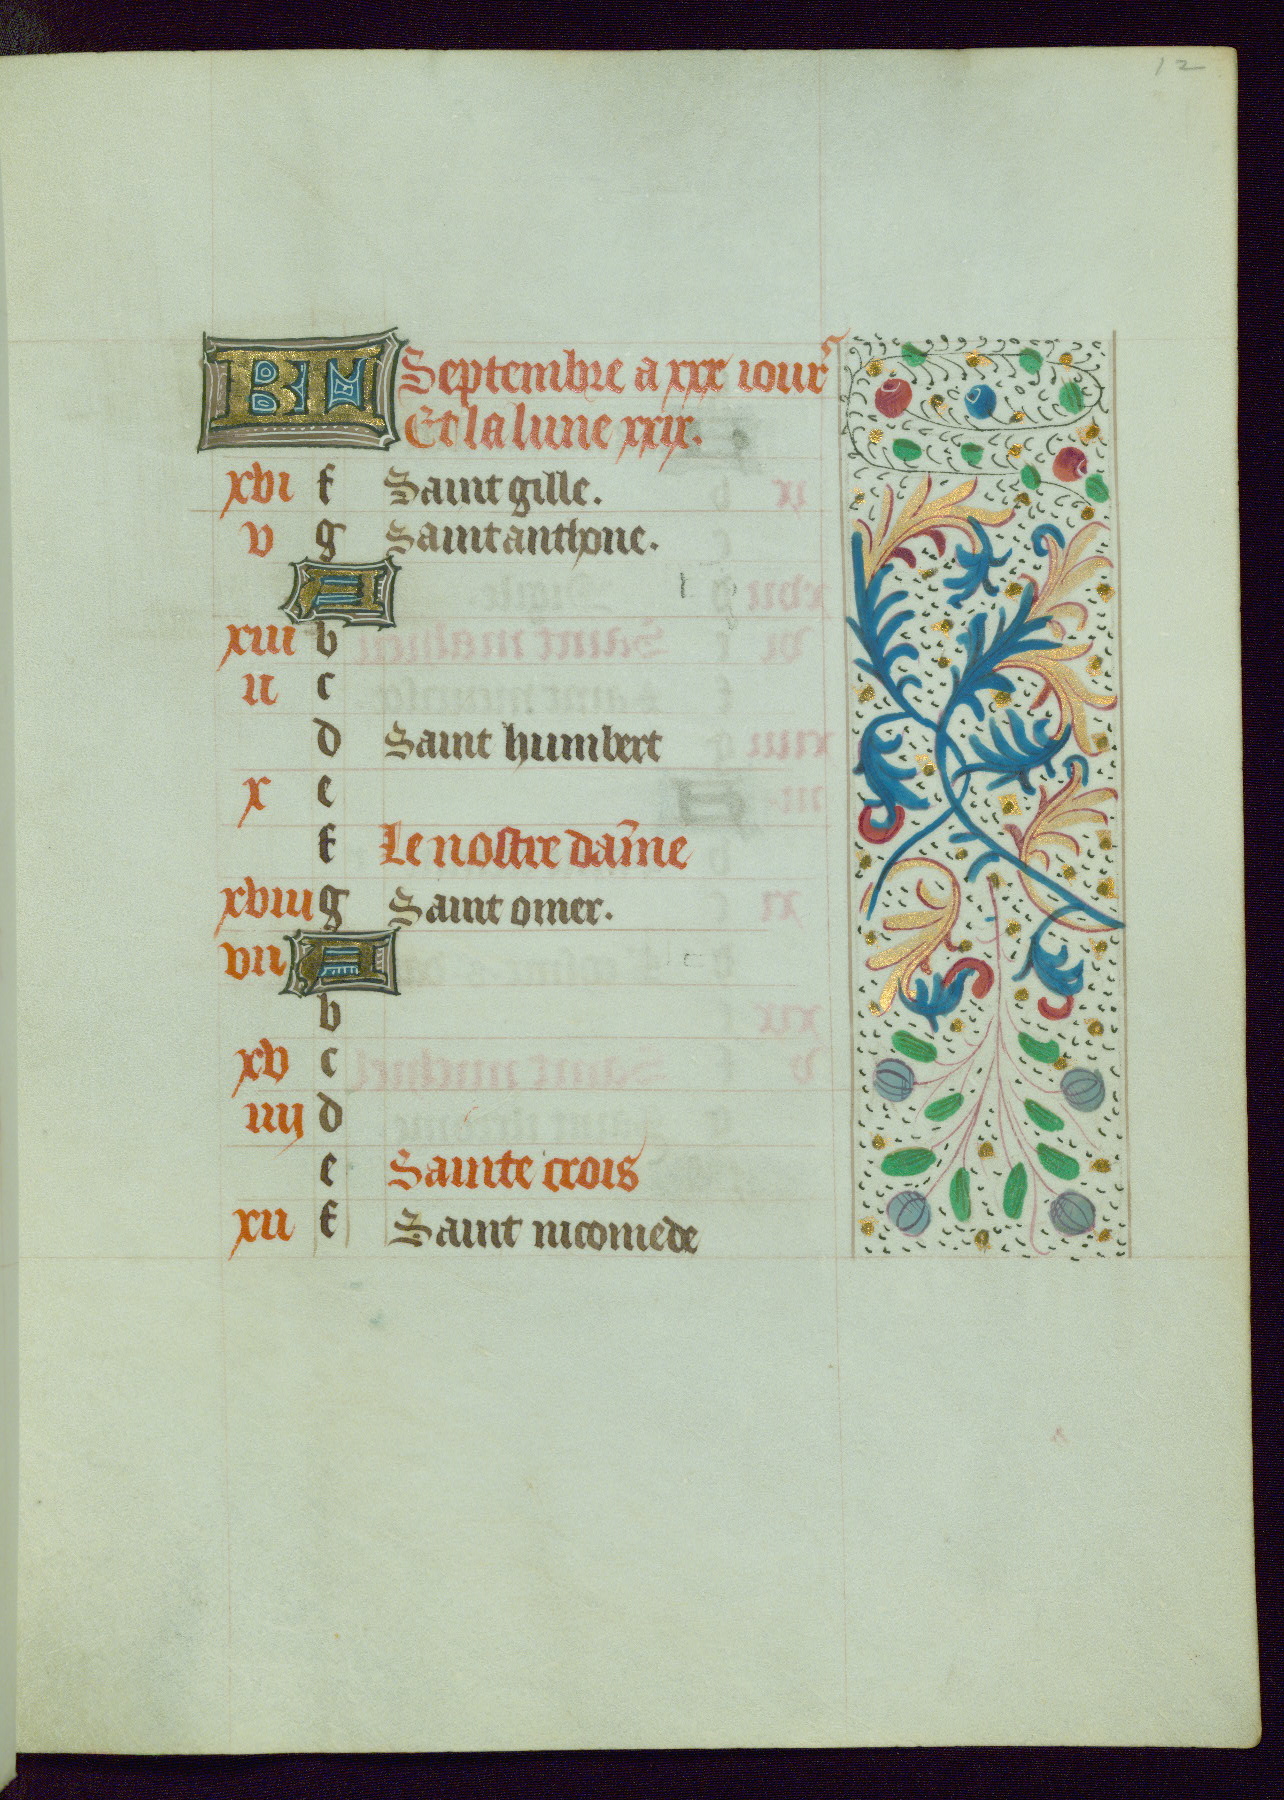 12
KL Septembre a xxx iours
Et la lune xxix.
xvi f Saint gille.
v g Saint anthone.
A
xiii b
ii c
d Saint humbert
x e
f Le nostre dame
xviii g Saint omer.
vii A
b
xv c
iiij d
e Sainte crois
xii f Saint nicomede